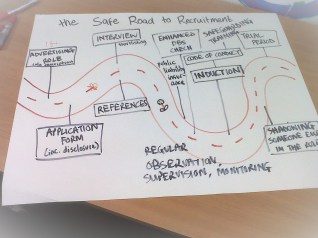 the Safe Road to Recruitment
ADVERTISING
ROLE
INTERVIEW
ENHANCED
DBS
CHECK
Public
liability
insur-
ance
SAFEGUARDING
TRAINING
CODE OF CONDUCT
INDUCTION
TRIAL
PERIOD
REFERENCES
APPLICATION
FORM
(inc. disclosure)
SHADOWING
SOMEONE ELSE
IN THE ROLE
REGULAR
OBSERVATION,
SUPERVISION, MONITORING